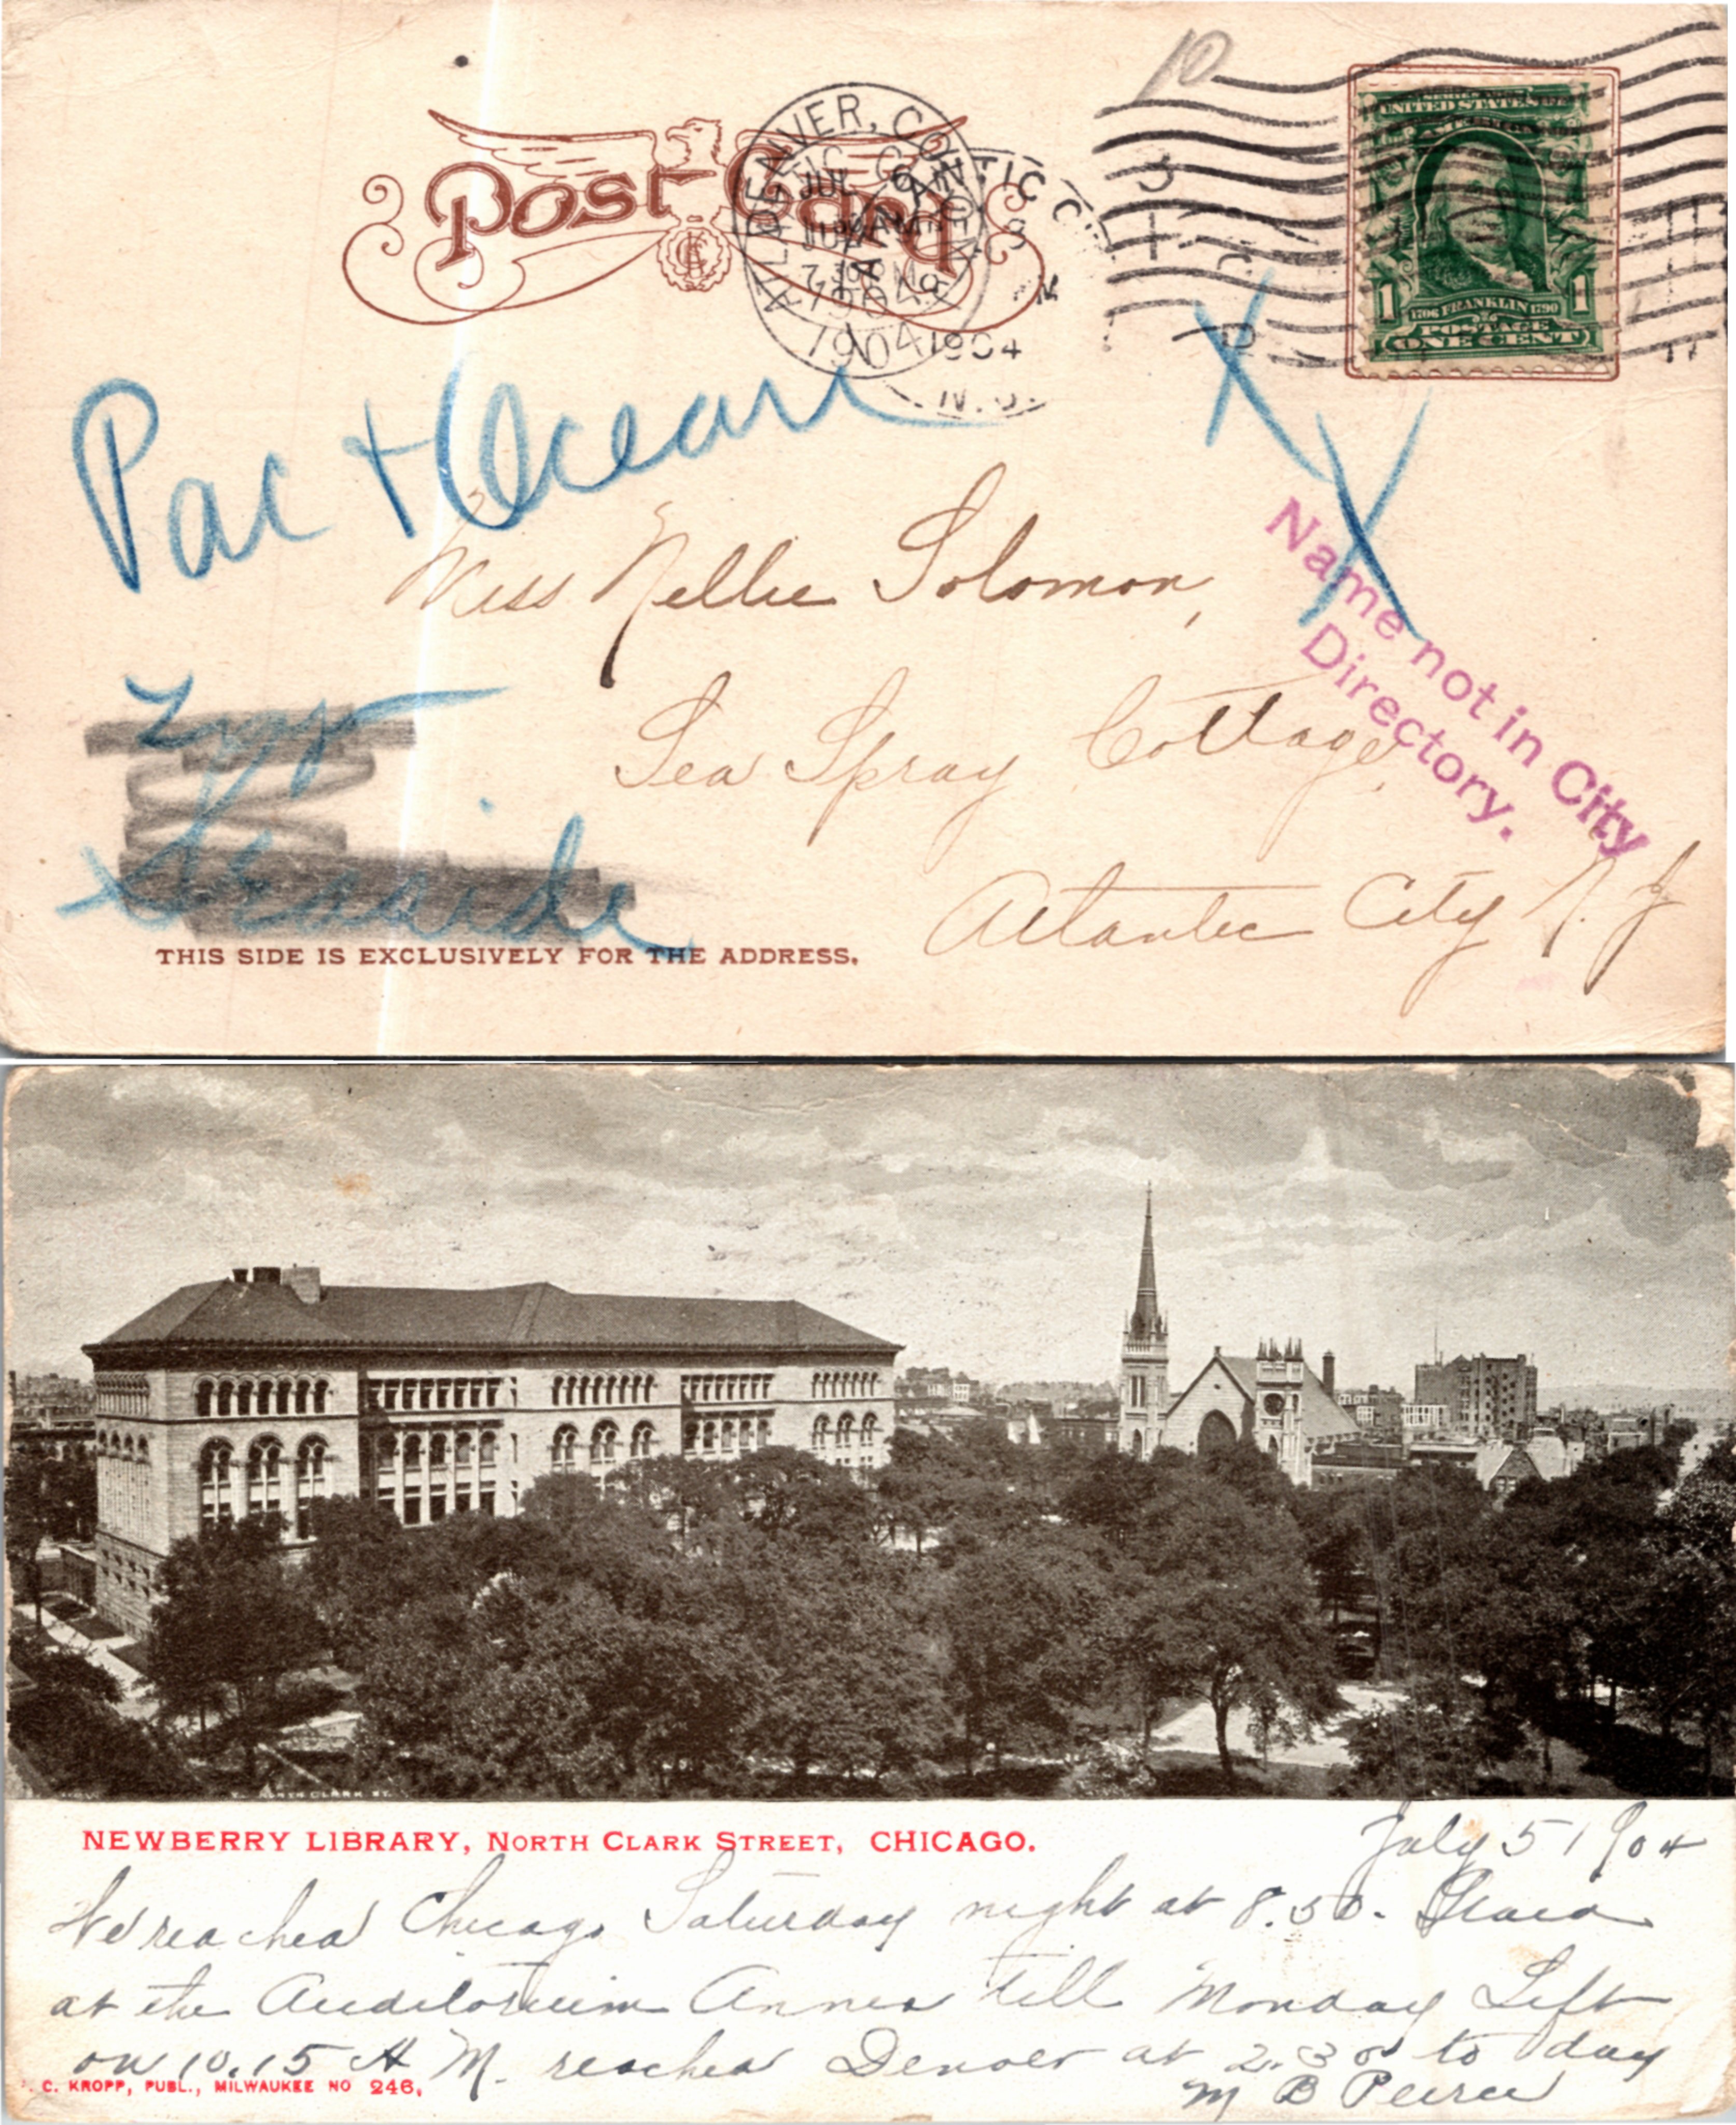 Post Card
DENVER, CO
JUL
1904
1904
N.J.
10
UNITED STATES OF AMERICA
1 1
1706 FRANKLIN 1790
POSTAGE
ONE CENT
Pac + Ocean
Miss Nellie Solomon,
Sea Spray Cottage,
Atlantic City N. J
Name not in City
Directory.
Seaside
THIS SIDE IS EXCLUSIVELY FOR THE ADDRESS.
NORTH CLARK ST.
NEWBERRY LIBRARY, NORTH CLARK STREET, CHICAGO.
July 5 1904
We reached Chicago Saturday night at 8.50. Staid
at the Auditorium Annex till Monday Left
on 10.15 A M. reached Denver at 2.30 to day
M B Peirce
C. KROPP, PUBL., MILWAUKEE NO 246.